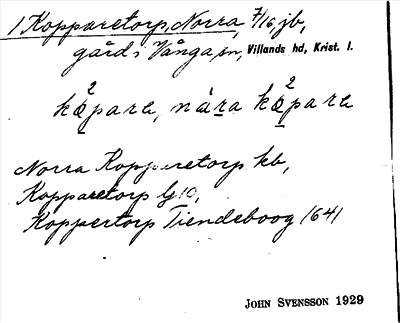 1 Kopparetorp, Norra, 7/16, jb,
gård i Vånga sn, Villands hd, Krist. l.
Norra Kopparetorp kb,
Kopparetorp Gj 10,
Koppertorp Tiendeboog 1641
JOHN SVENSSON 1929